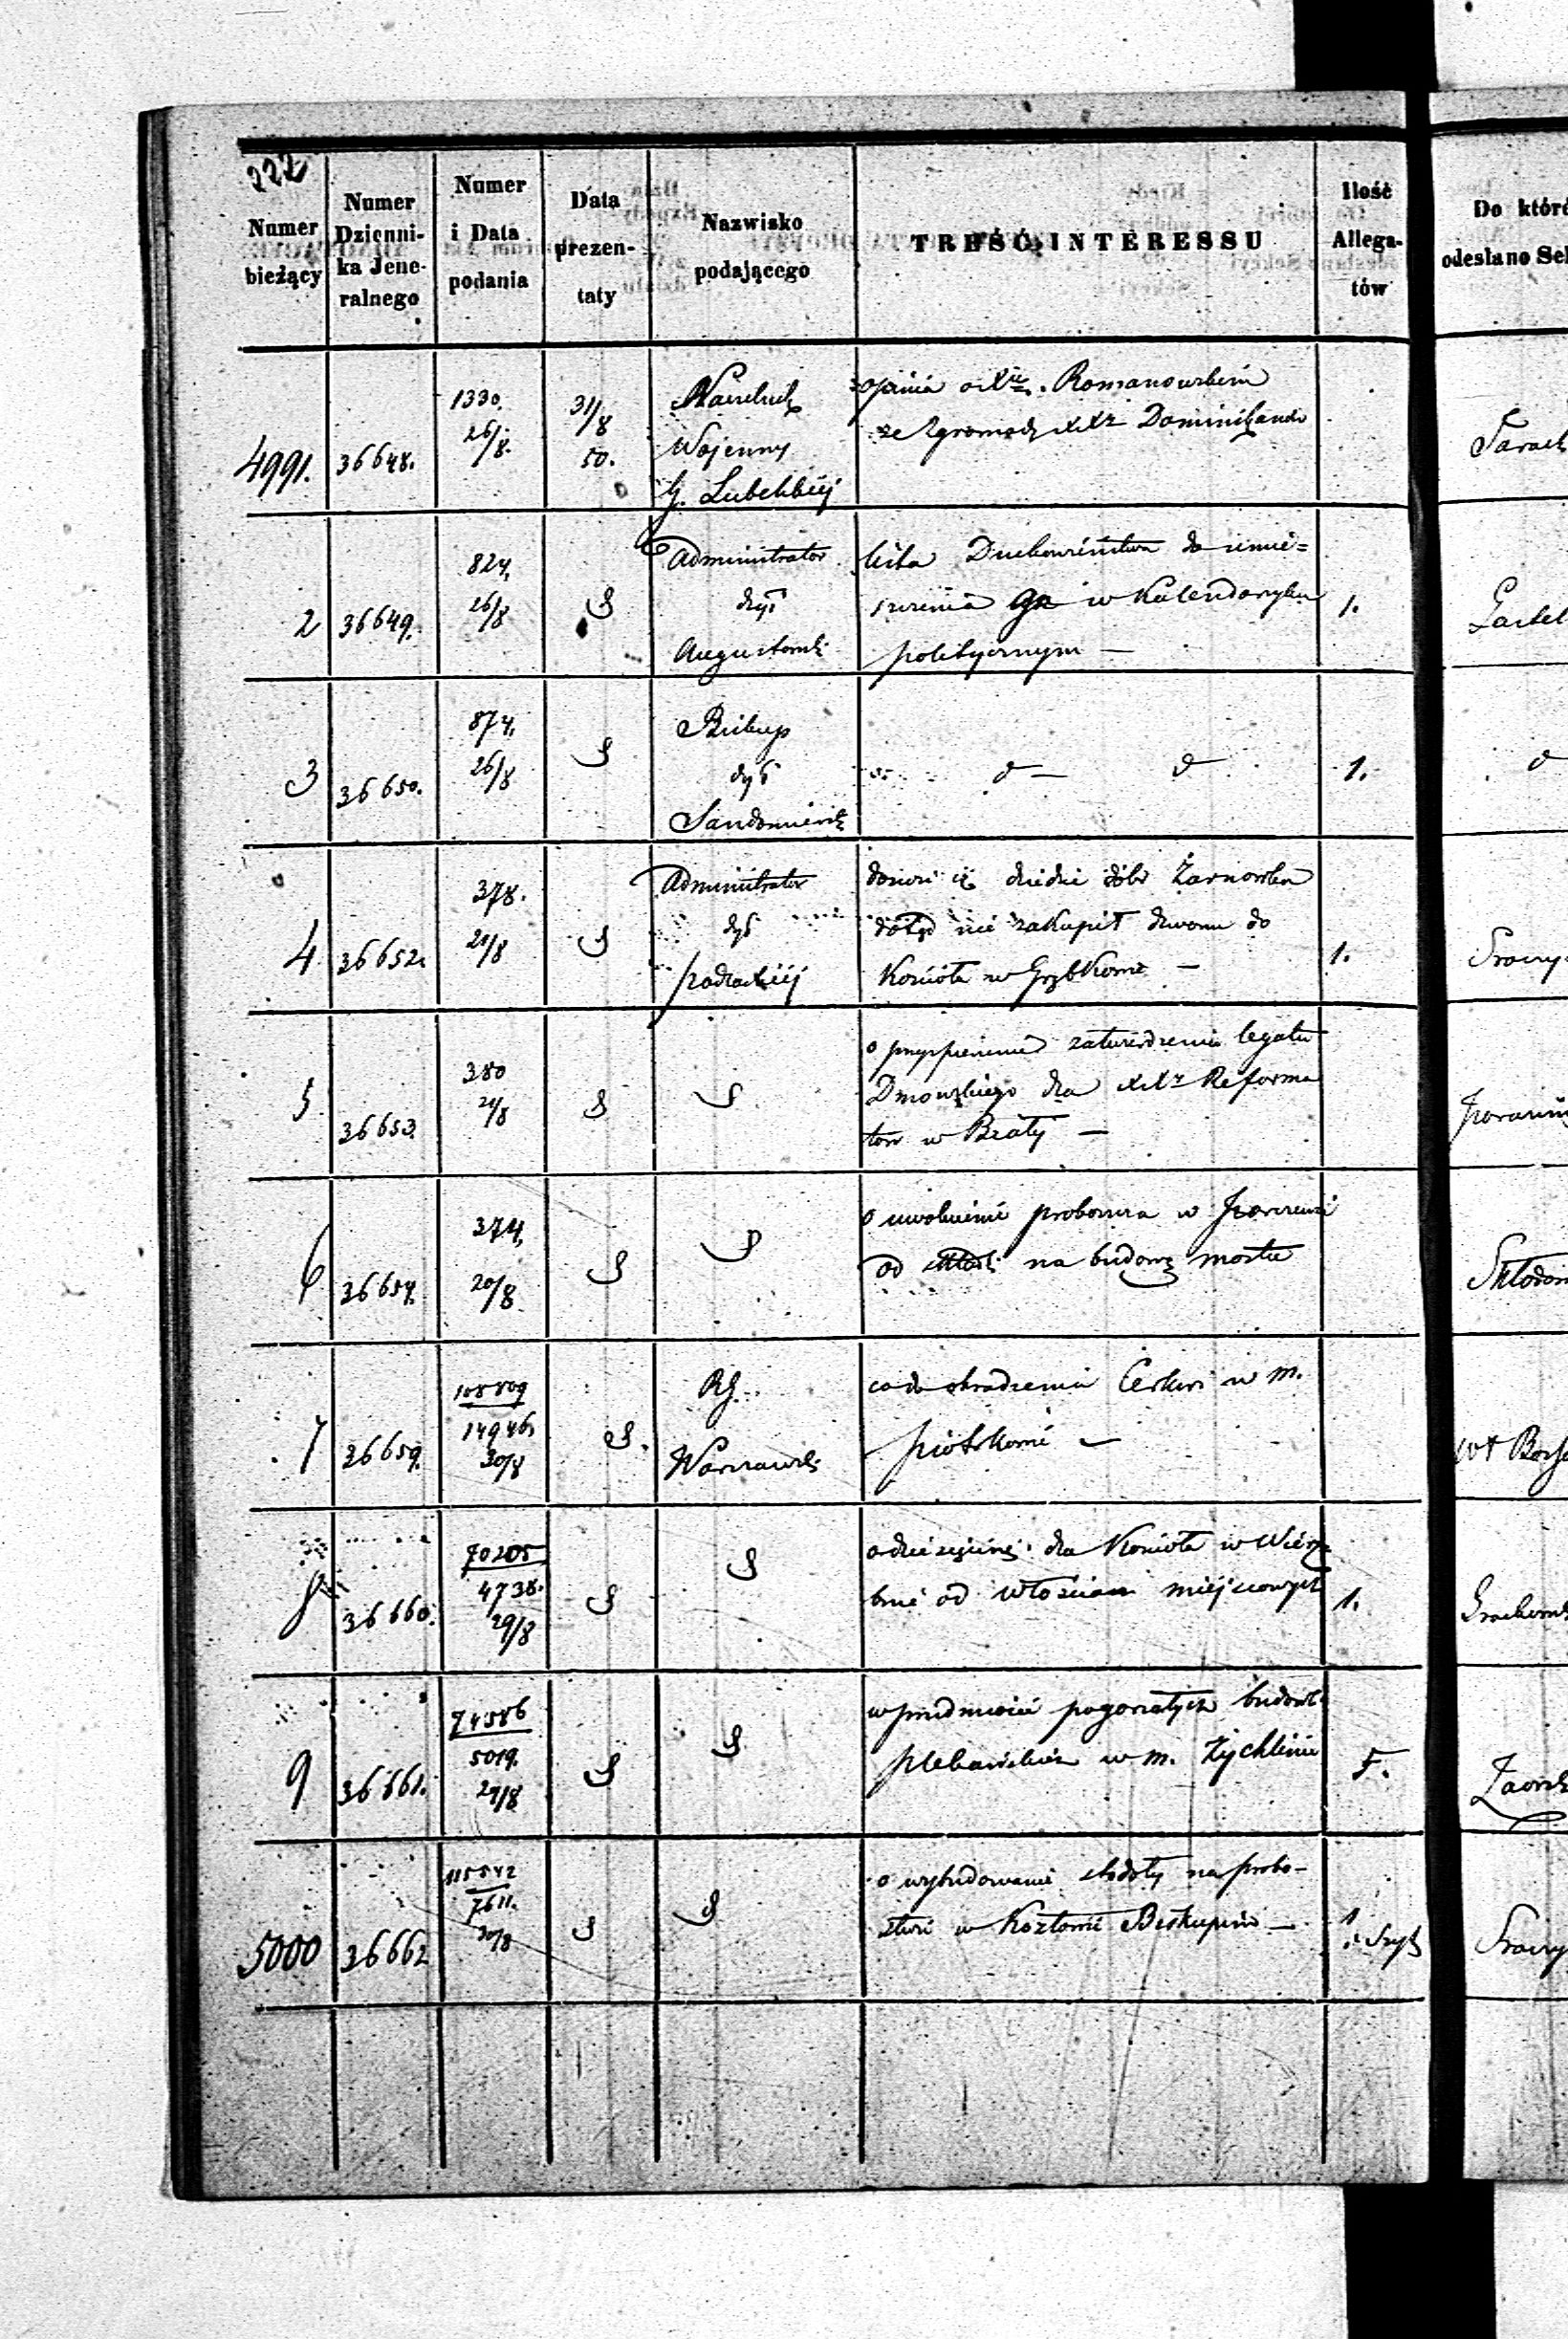 222
Numer
bieżący
Numer
Dzienni-
ka Jene-
ralnego
Numer
i Data
podania
Data
prezen-
taty
Nazwisko
podającego
TREŚĆ INTERESSU
Ilość
Allega-
tów
Do któré
odesłano Sek
4991. 36648. 1330. 26/8. 31/8 50.
Naczelnik
Wojenny
G. Lubelskiéj
opinia o Xię. Romanowskim
ze Zgromadz XX Dominikanów
2 36649. 824. 26/8
Administrator
dyć
Augustowski
lista Duchowieństwa do umie=
szczenia go w Kalendarzyku
politycznym — 1.
3 36650. 874. 26/8
Biskup
dyć
Sandomirsk
1.
4 36652. 378. 21/8
Administrator
dyć
podlaskiéj
donosi iż dziedzic dóbr Żarnówka
dotąd nie zakupił dzwonu do
Kościoła w Grzbkowie — 1.
5 36653. 380 21/8
o przyspieszenie zatwierdzenia legatu
Dmowskiego dla XX Reforma
tow w Białej —
6 36654. 374. 20/8
o uwolnienie proboszcza w
od składki na budowę mostu
7 36659. 108809 14946. 30/8
RG.
Warszawski
co do okradzenia Cerkwi w m.
Piotrkowie —
8 36660. 70205 4738. 29/8
o dziesięcinę dla Kościoła w Wierz=
bnie od włościan miejscowych 1.
9 36661. 74586 5019. 29/8
w przedmiocie pogorzałych budowl
plebańskich w m. Żychlinie 5.
5000 36662 115542 7611. 30/8
o wybudowanie stodoły na probo-
stwie w Kozłowie Biskupim — 1